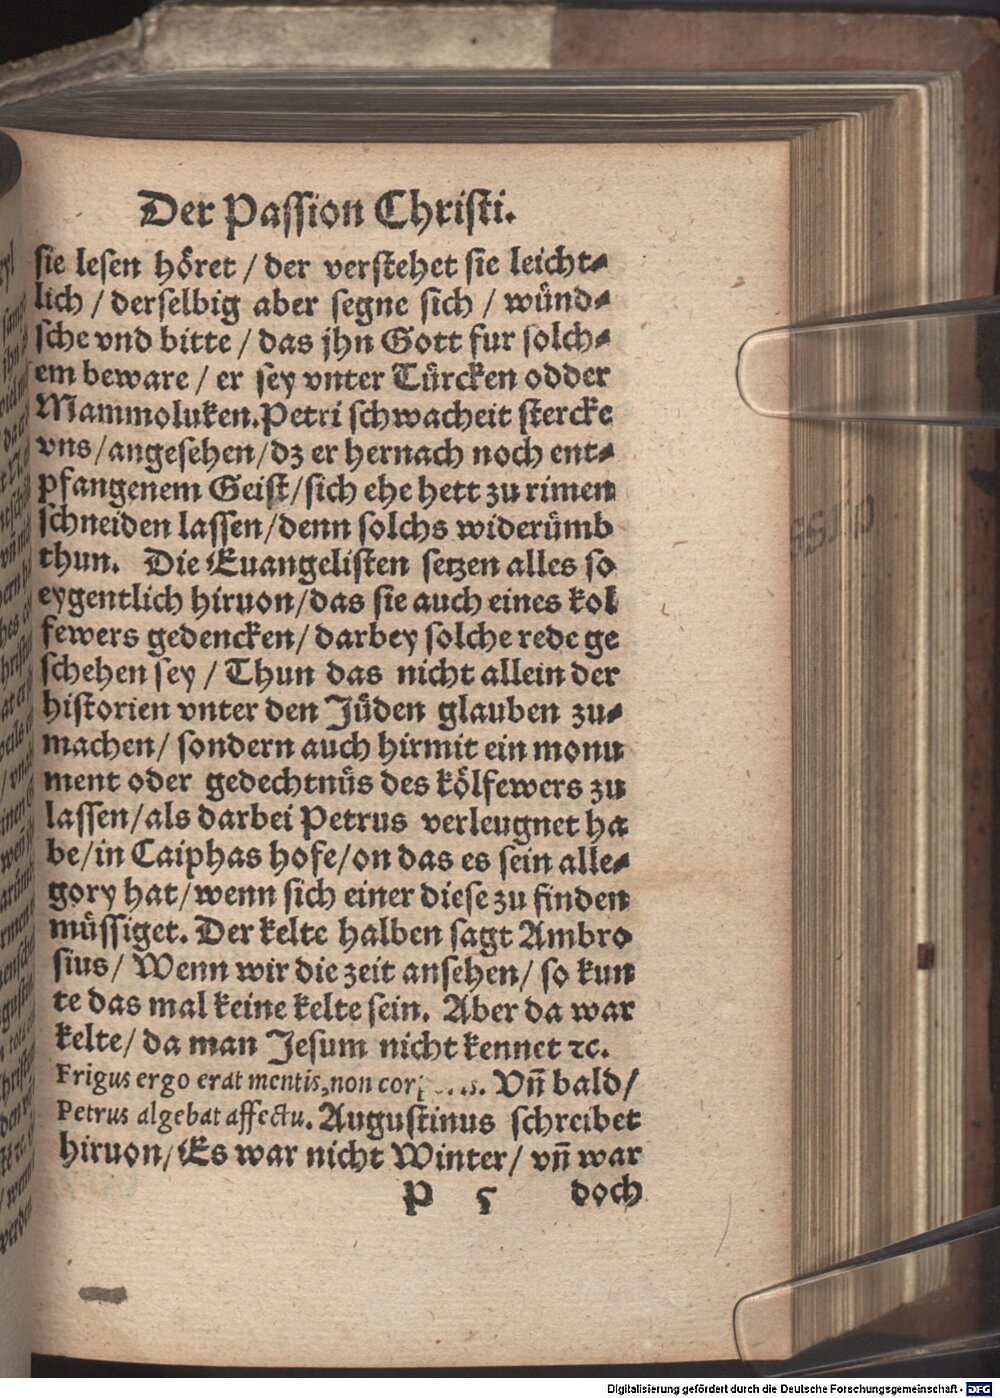 Der Passion Christi.
sie lesen höret / der verstehet sie leicht⸗
lich / derselbig aber segne sich / wünd⸗
sche vnd bitte / das jhn Gott fur solch⸗
em beware / er sey vnter Türcken odder
Mammoluken. Petri schwacheit stercke
vns / angesehen / dz er hernach noch ent⸗
pfangenem Geist / sich ehe hett zu rimen
schneiden lassen / denn solchs widerümb
thun. Die Euangelisten setzen alles so
eygentlich hiruon / das sie auch eines kol
fewers gedencken / darbey solche rede ge
schehen sey / Thun das nicht allein der
historien vnter den Jüden glauben zu⸗
machen / sondern auch hirmit ein monu
ment oder gedechtnüs des kölfewers zu
lassen / als darbei Petrus verleugnet ha
be / in Caiphas hofe / on das es sein alle⸗
gory hat / wenn sich einer diese zu finden
müssiget. Der kelte halben sagt Ambro
sius / Wenn wir die zeit ansehen / so kun
te das mal keine kelte sein. Aber da war
kelte / da man Jesum nicht kennet ꝛc.
Frigus ergo erat mentis, non Vñ bald /
Petrus algebat affectu. Augustinus schreibet
hiruon / Es war nicht Winter / vñ war
P 5 doch
Digitalisierung gefördert durch die Deutsche Forschungsgemeinschaft - DFG